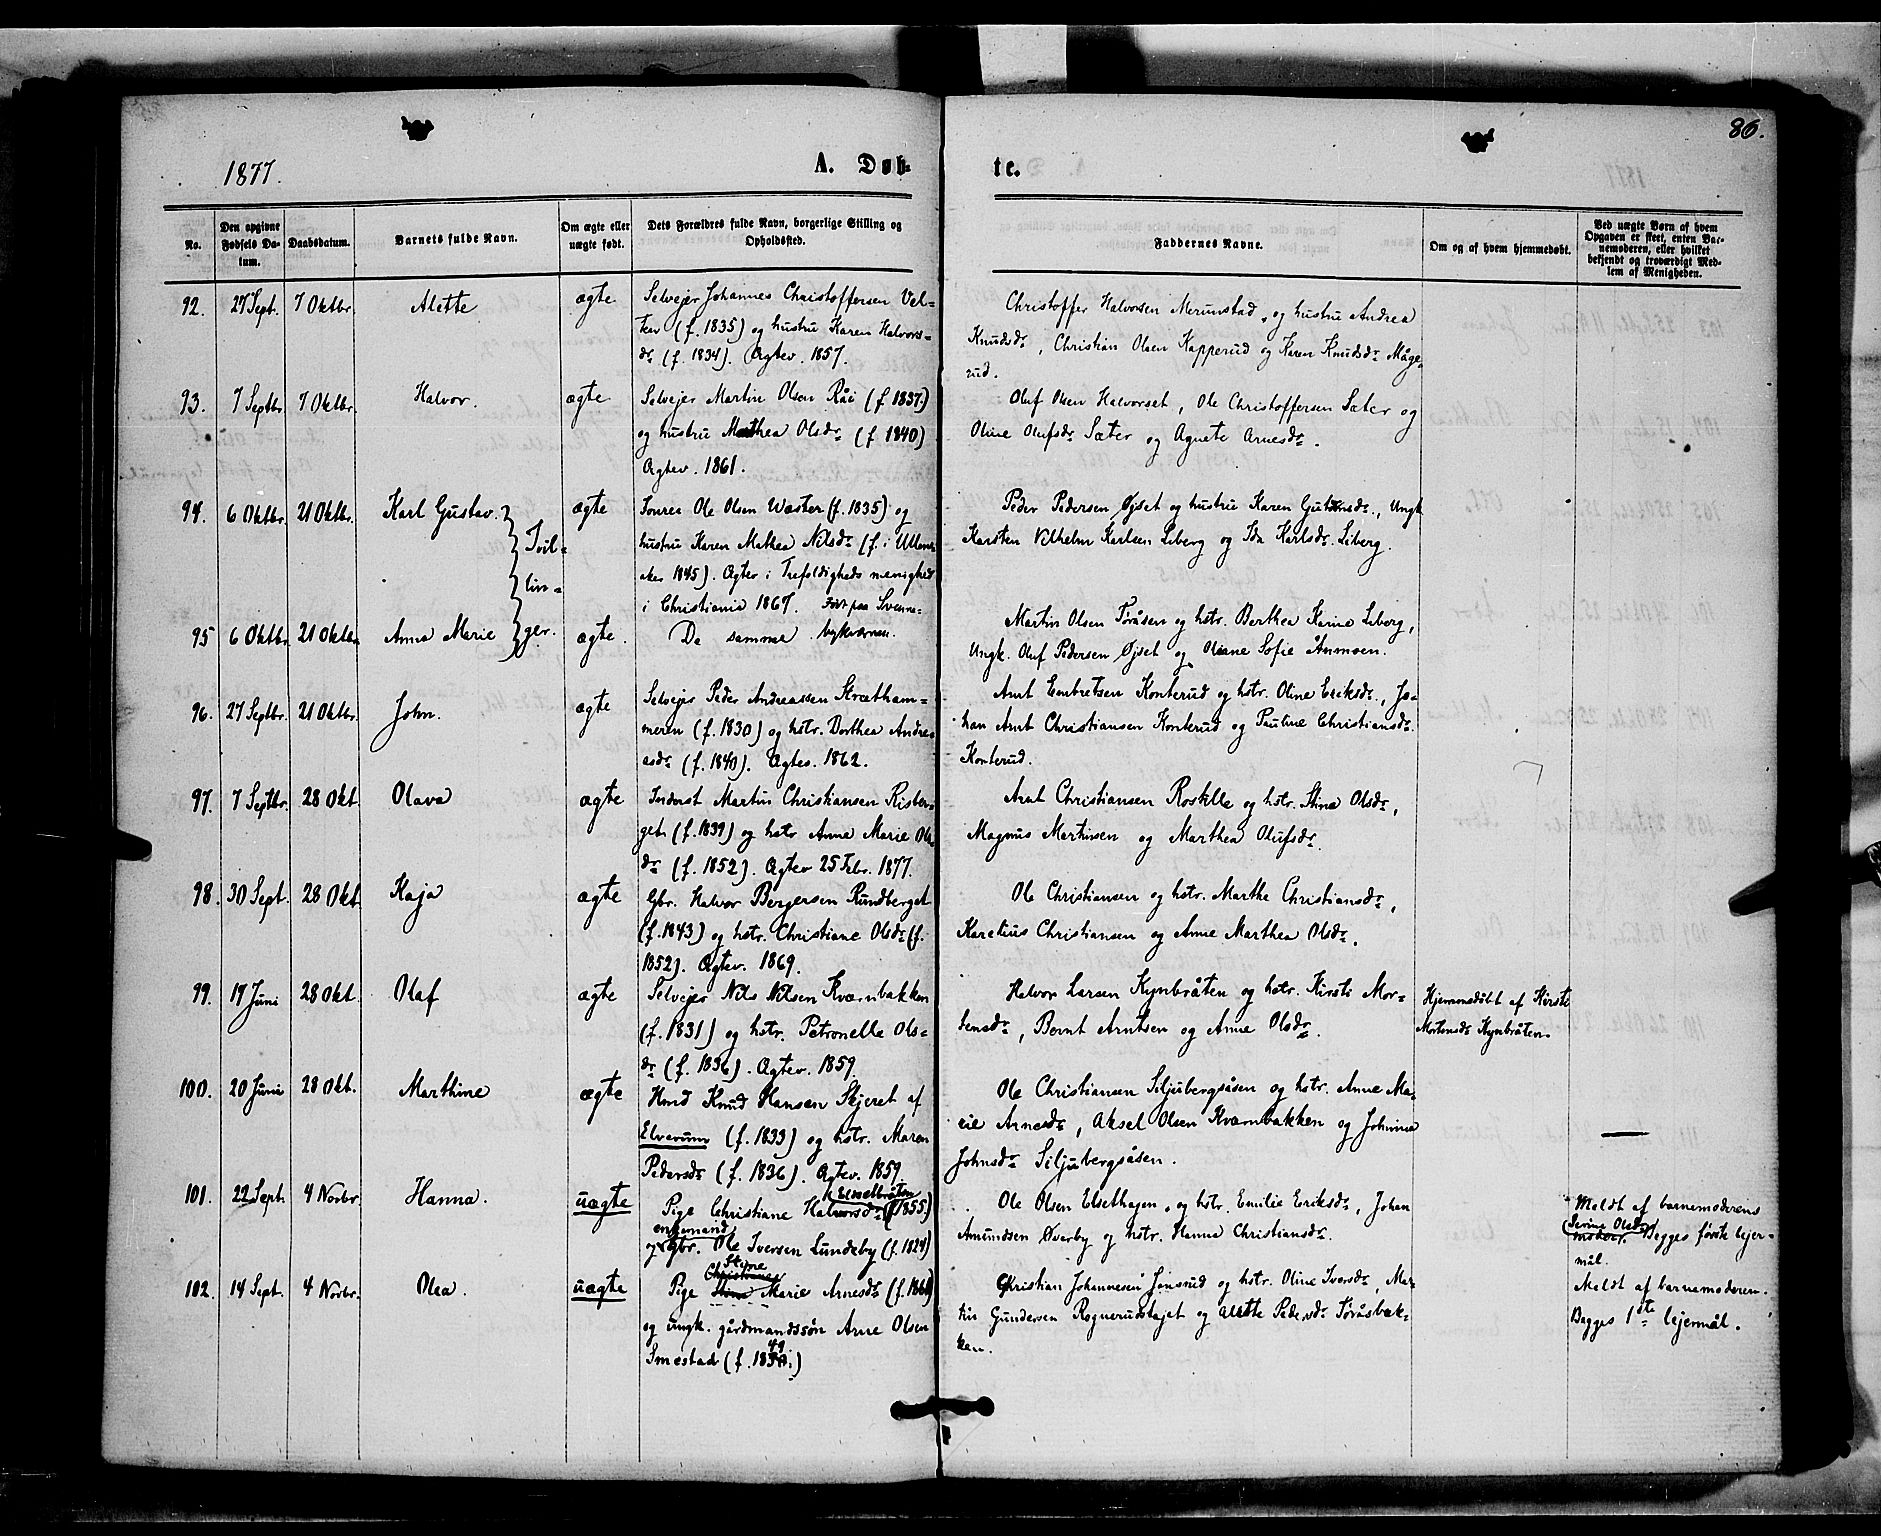 1877.
A. Døb-
te.
86.
No.
Den opgivne Fødsels Datum.
Daabsdatum.
Barnets fulde Navn.
Om ægte eller uægte født.
Dets Forældres fulde Navn, borgerlige Stilling og Opholdssted.
Faddernes Navne.
Om og af hvem hjemmedøbt.
Ved uægte Børn af hvem Opgaven er skeet, enten Barnemoderen, eller hvilket bekjendt og troværdigt Medlem af Menigheden.
92. 27 Sept. 7 Oktbr. Alette ægte
Selvejer Johannes Christoffersen Vel-
ten (f. 1835) og hustru Karen Halvors-
dr. (f. 1834). Ægtev. 1857.
Christoffer Halvorsen Merunstad, og hustru Andrea
Knudsdr., Christian Olsen Kapperud og Karen Knudsdr. Måge-
rud.
93. 7 Septbr. 7 Oktbr. Halvor. ægte
Selvejer Martin Olsen Råi (f 1837.)
og hustru Mathea Olsdr. (f. 1840)
Ægtev. 1861.
Oluf Olsen Halvorset, Ole Christoffersen Sæter og
Oline Olufsdr. Sæter og Agnete Arnesdr.
94. 6 Oktbr. 21 Oktbr. Karl Gustav. ægte
Tvil-
lin-
ger.
Ole Olsen Wæster (f. 1835) og
hustru Karen Mathea Nilsdr. (f. i Ullens-
aker 1845). Ægtev i Trefoldigheds menighed
i Christiania 1867. Født paa Svenne-
bykværnen.
Peder Pedersen Øjset og hustru Karen Gutormsdr., Ungk.
Karsten Vilhelm Karlsen Liberg og Ida Karlsdr. Liberg.
95 6 Oktbr. 21 Oktbr. Anna Marie ægte.
De samme
Martin Olsen Toråsen og hstr. Berthea Karine Liberg,
Ungk. Oluf Pedersen Øjset og Oliane Sofie Åmmoen.
96. 27 Septbr. 21 Oktbr. John. ægte
Selvejer Peder Andreassen Strætham-
meren (f. 1830) og hstr. Dorthea Andre-
asdr. (f. 1840). Ægtev. 1862.
Arnt Embretsen Konterud og hstr. Oline Eriksdr., Jo-
han Arnt Christiansen Konterud og Pauline Christiansdr.
Konterud.
97. 7 Septbr. 28 Okt. Olava ægte
Inderst Martin Christiansen Risber-
get. (f. 1839) og hstr Anne Marie Ols-
dr. (f. 1852). Ægtev 25 Febr. 1877.
Arnt Christiansen Roskille og hstr. Stina Olsdr.,
Magnus Martinsen og Marthea Olufsdr.
98. 30 Sept. 28 Okt. Kaja ægte
Gbr. Halvor Bergersen Rundberget
(f. 1843) og hstr. Christiane Olsdr. (f.
1852). Ægtev. 1869.
Ole Christiansen og hstr. Marthe Christiansdr.,
Karelius Christiansen og Anne Marthea Olsdr.
99. 19 Juni 28 Okt. Olaf ægte
Selvejer Nils Nilsen Kværnbakken
(f. 1831) og hstr. Petronelle Ols-
dr. (f. 1836). Ægtev. 1859.
Halvor Larsen Kynbråten og hstr. Kirsti Mor-
tensdr., Bernt Arntsen og Anne Olsdr.
Hjemmedøbt af Kirsti
Mortensdr. Kynbråten.
100. 20 Juni 28 Okt. Marthine ægte
Hmd Knud Hansen Skjeret af
Elverum (f. 1833) og hstr. Maren
Pedersdr. (f. 1836). Ægtev. 1859
Ole Christiansen Siljubergsåsen og hstr. Anne Ma-
rie Arnesdr., Aksel Olsen Kværnbakken og Johnina
Johnsdr. Siljubergsåsen.
101. 22 Sept. 4 Novbr. Hanna. uægte
Pige Christiane Halvorsdr. (f 1855.)
enkemand
og Gbr. Ole Iversen Lundeby (f. 1824)
Ole Olsen Elsethagen, og hstr. Emilie Eriksdr., Johan
Amundsen Øverby og hstr. Hanna Christiansdr.
Meldt af barnemoderens
moder. (Serine Olsdr.) Begges første lejer-
mål.
102. 14 Sept. 4 Novbr. Olea. uægte
Styne
Pige Marie Arnesdr.
og ungk. gårdmandssøn Arne Olsen
Smestad
Christian Johannesen Jonsrud og hstr. Oline Iversdr., Mar-
tin Gundersen Rognerudstajet og Alette Pedersdr. Toråsbak-
ken.
Meldt af barnemoderen.
Begges 1ste lejermål.